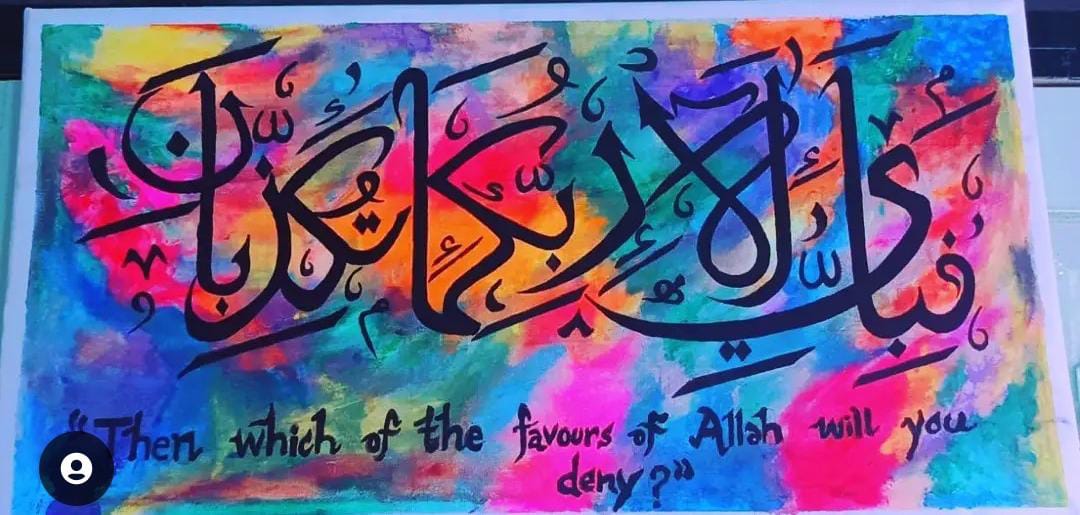 فَبِأَيِّ آلَاءِ رَبِّكُمَا تُكَذِّبَانِ
"Then which of the favours of Allah will you
deny?"